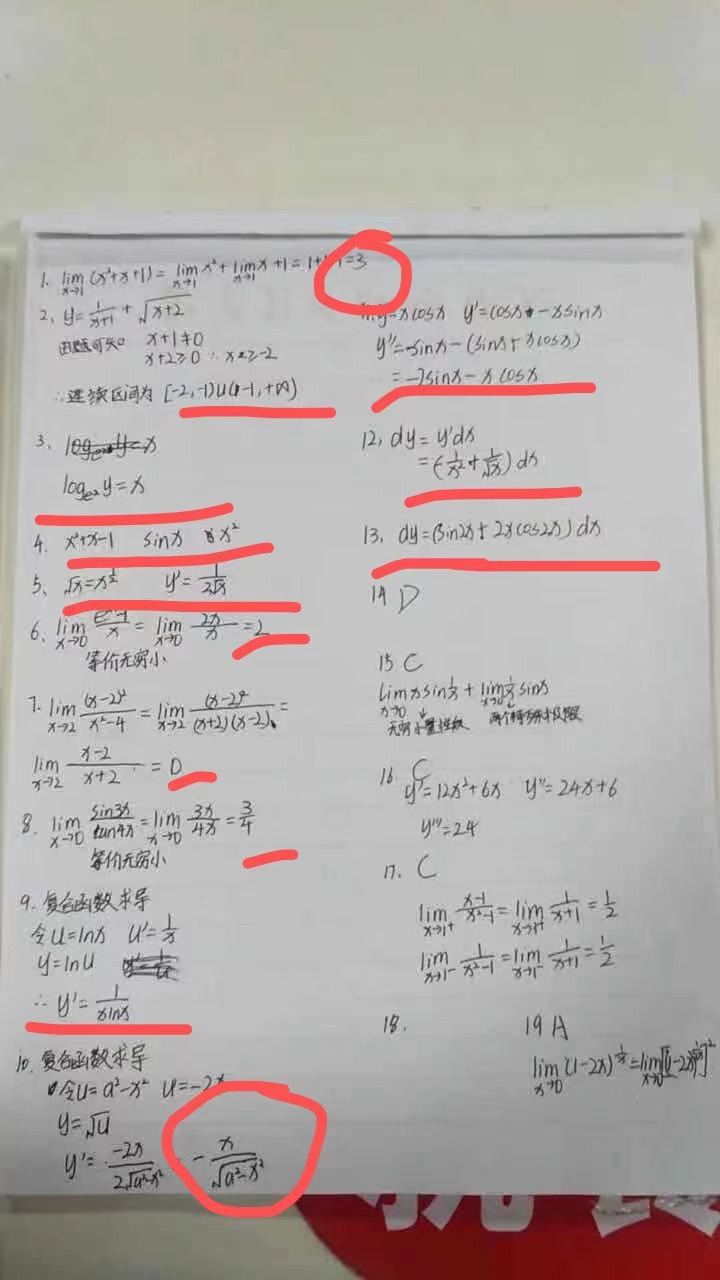 1. lim x→1 (x²+x+1) = lim x→1 x² + lim x→1 x +1 = 1+1+1=3
2. y = 1/(x+1) + √(x+2)
由题可知 x+1≠0
x+2≥0 ∴ x≥-2
∴连续区间为 [-2,-1)∪(-1,+∞)
3.
log_e² y = x
4. x²+x-1 sinx x²
5、 √x = x^(1/2) y' = 1/(2√x)
6、 lim x→0 /x = lim x→0 2x/x = 2
等价无穷小
7. lim x→2 (x-2)²/(x²-4) = lim x→2 (x-2)²/((x+2)(x-2)) =
lim x→2 (x-2)/(x+2) = 0
8. lim x→0 sin3x/tan4x = lim x→0 3x/4x = 3/4
等价无穷小
9. 复合函数求导
令u=lnx u'=1/x
y=lnu
∴ y' = 1/(xlnx)
10. 复合函数求导
令u=a²-x² u=-2x
y=√u
y' = -2x/(2√(a²-x²)) - x/√(a²-x²)
y=xcosx y'=cosx-xsinx
y''=-sinx-(sinx+xcosx)
=-2sinx-xcosx
12. dy = y'dx
=(-1/x²+1/√x)dx
13. dy=(sin2x+2xcos2x)dx
14 D
15 C
lim x→0 xsin1/x + lim x→0 1/x sinx
无穷小 两个重要极限
16 C
y'=12x²+6x y''=24x+6
y'''=24
17. C
lim x→1⁺ (x-1)/(x²-1) = lim x→1⁺ 1/(x+1) = 1/2
lim x→1⁻ 1/(x²-1) = lim x→1⁻ 1/(x+1) = 1/2
18. 19 A
lim x→0 (1-2x)^(1/x) = lim x→0